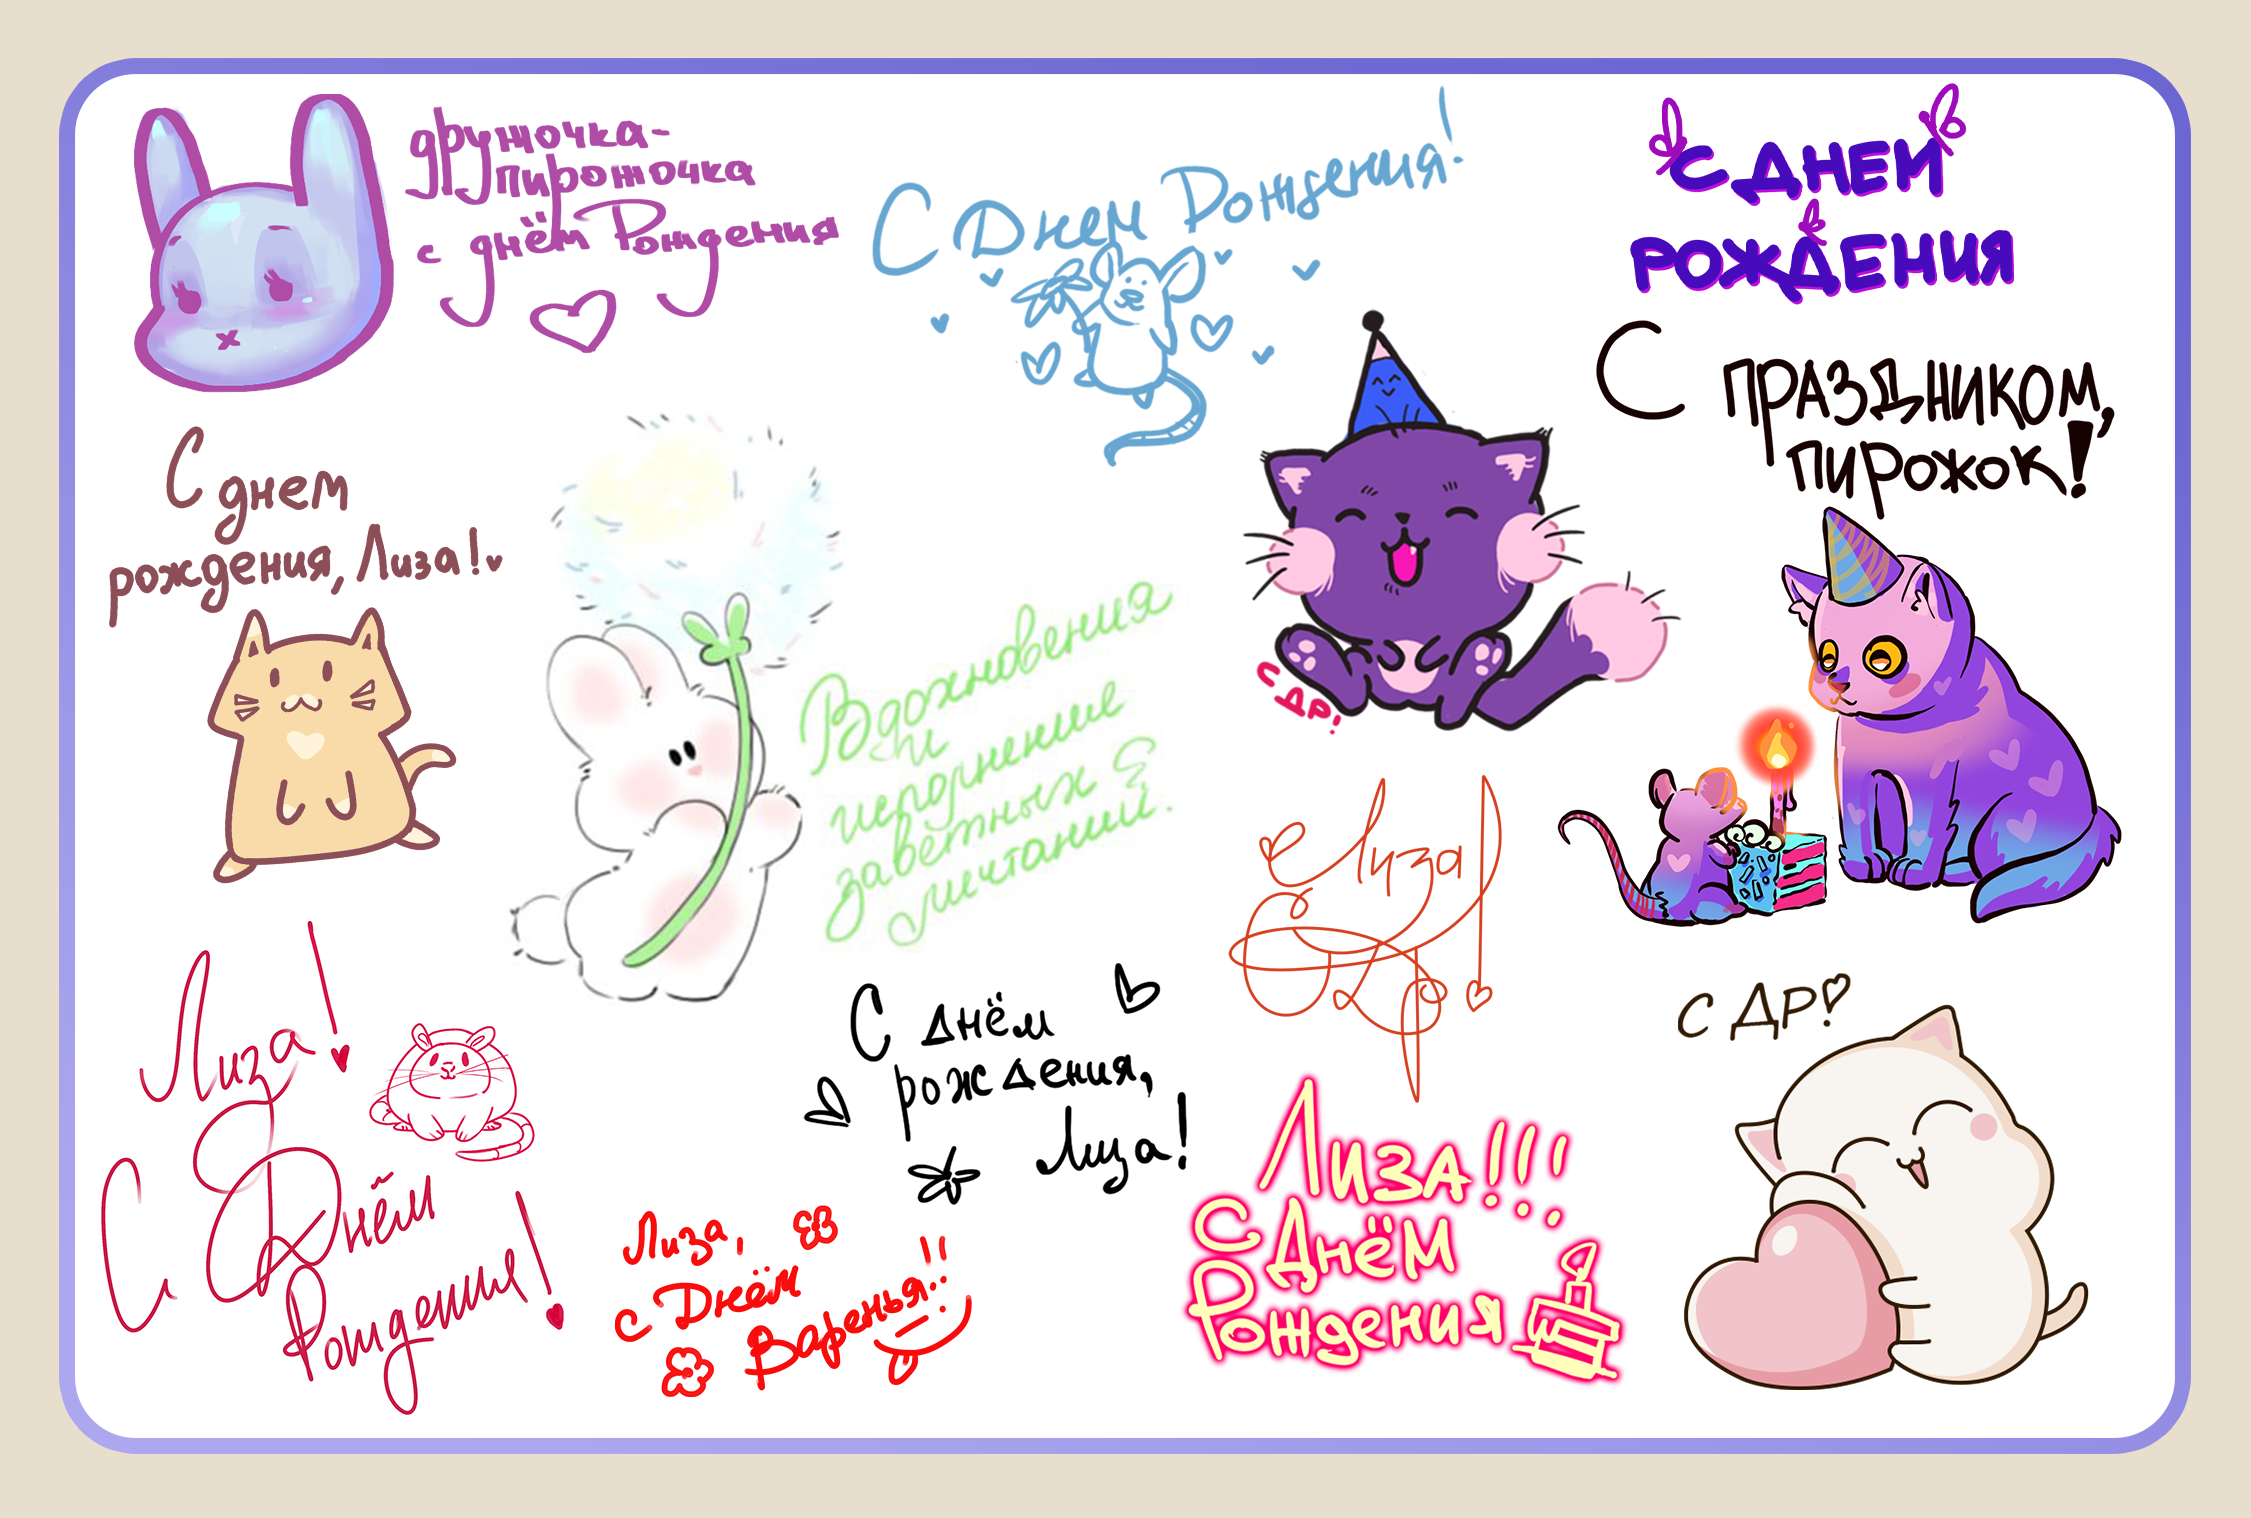 дружочка-
пирожочка
с днём Рождения
С Днем Рождения!
С ДНЕМ
РОЖДЕНИЯ
С ПРАЗДНИКОМ,
ПИРОЖОК!
С днем
рождения, Лиза!
Вдохновения
и
исполнение
заветных
мечтаний.
С ДР!
Лиза!
С ДР
Лиза!
С Днём
Рождения!
С днём
рождения,
Лиза!
Лиза,
с Днём
Варенья!!
Лиза!!!
С Днём
Рождения
С ДР!